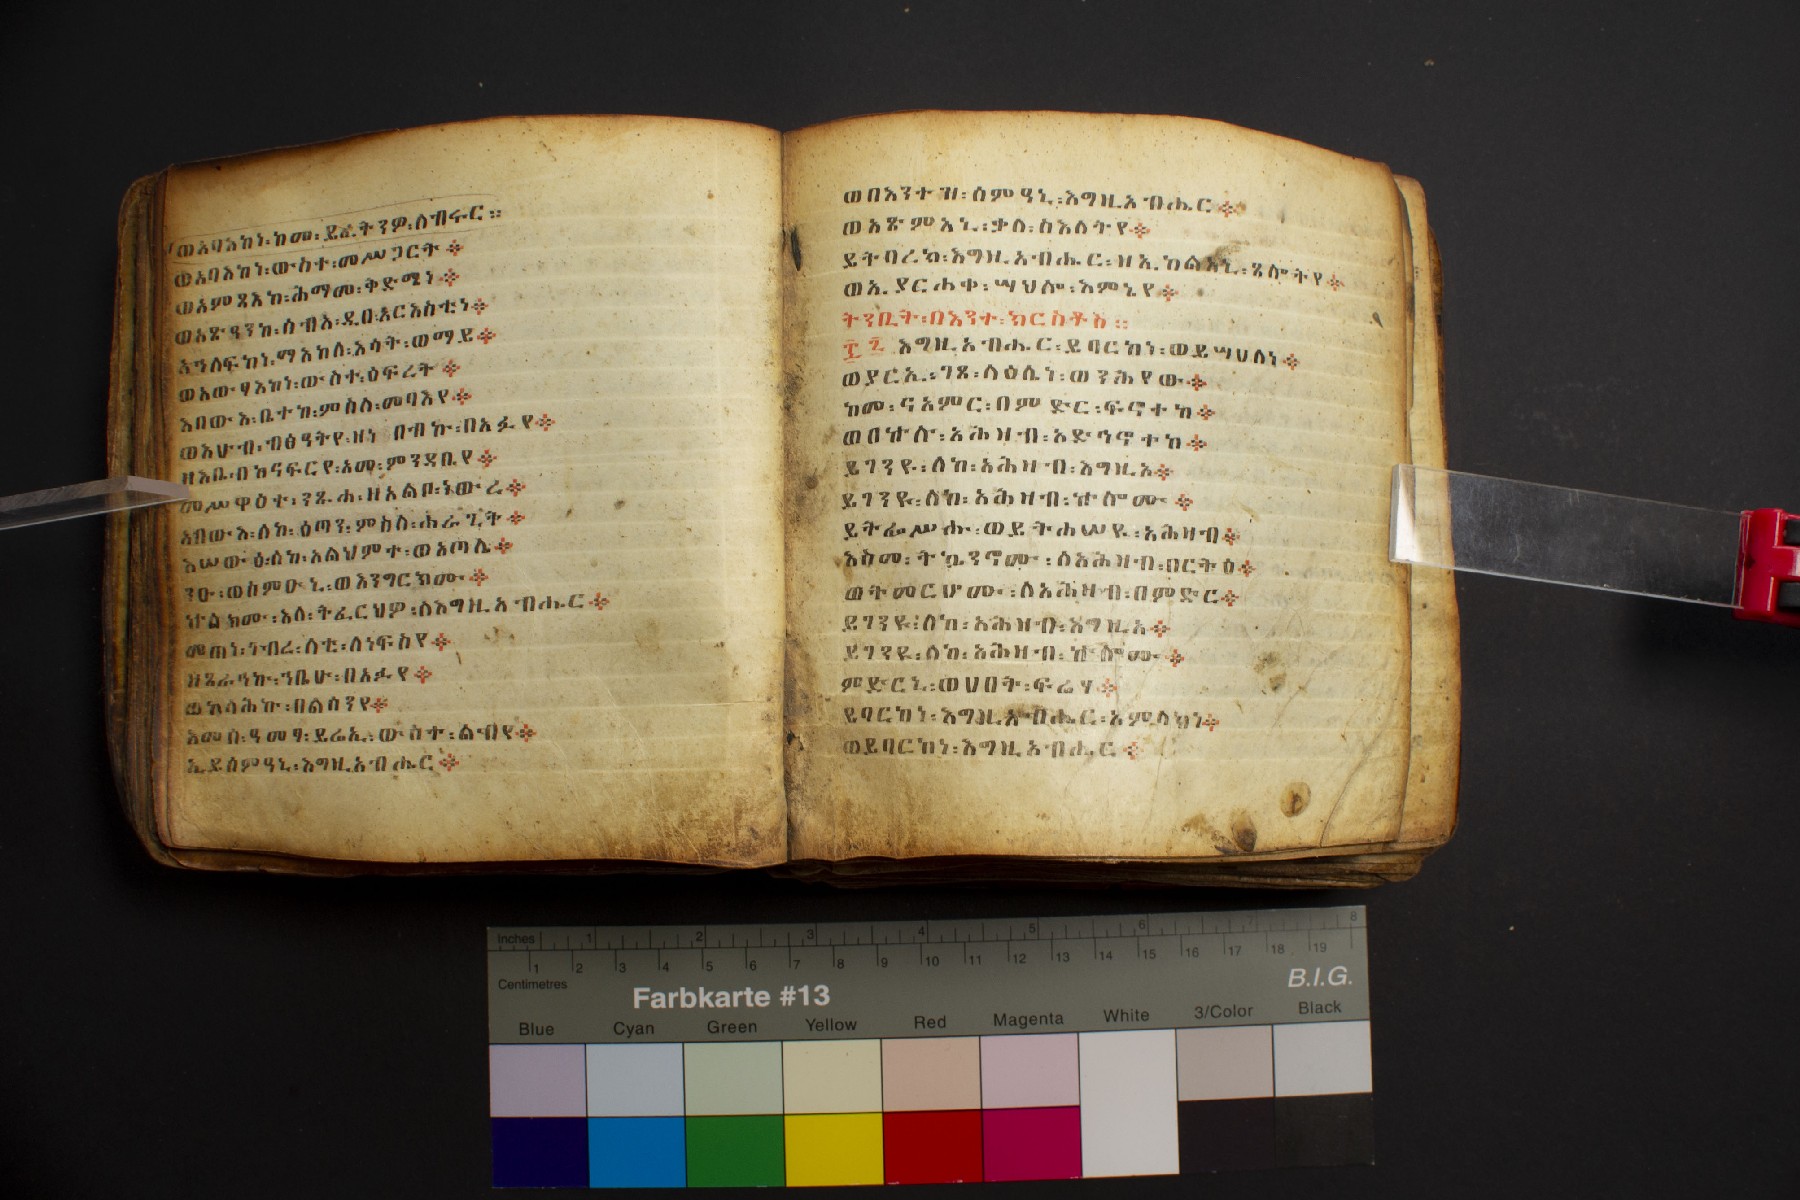 ወአባእከነ፡ከመ፡ይፈትንዎ፡ለብሩር።
ወአባእከነ፡ውስተ፡መሥገርት
ወአምጻእከ፡ሕማመ፡ቅድሜነ
ወአጽዓንከ፡ሰብእ፡ዲበ፡አርእስቲነ
አኅለፍከነ፡ማእከለ፡እሳት፡ወማይ
ወአውፃእከነ፡ውስተ፡ዕፍረት
እበውእ፡ቤተከ፡ምስለ፡መባእየ
ወእሁብ፡ብፅዓትየ፡ዘነበብኩ፡በአፉየ
ዘእቤ፡በከናፍርየ፡አመ፡ምንዳቤየ
መሥዋዕተ፡ንጹሐ፡ዘአልቦ፡ነውረ
አበውእ፡ለከ፡ዕጣነ፡ምስለ፡ሐራጊት
እሠውዕ፡ለከ፡አልህምተ፡ወአጣሌ
ንዑ፡ወስምዑኒ፡ወእንግርክሙ
ኵልክሙ፡እለ፡ትፈርህዎ፡ለእግዚአብሔር
መጠነ፡ገብረ፡ሊተ፡ለነፍስየ
ዘጸራኅኩ፡ኀቤሁ፡በአፉየ
ወከላሕኩ፡በልሳንየ
እመሰ፡ዓመፃ፡ይሬኢ፡ውስተ፡ልብየ
ኢይሰምዓኒ፡እግዚአብሔር
ወበእንተዝ፡ሰምዓኒ፡እግዚአብሔር
ወአጽምአኒ፡ቃለ፡ስእለትየ
ይትባረክ፡እግዚአብሔር፡ዘኢከልአኒ፡ጸሎትየ
ወኢያርሐቀ፡ሣህሎ፡እምኔየ
ትንቢት፡በእንተ፡ክርስቶስ።
፷፮ እግዚአብሔር፡ይባርከነ፡ወይሣህለነ
ወያርኢ፡ገጾ፡ላዕሌነ፡ወንሕየው
ከመ፡ናእምር፡በምድር፡ፍኖተከ
ወበኵሉ፡አሕዛብ፡አድኅኖተከ
ይገንዩ፡ለከ፡አሕዛብ፡እግዚአ
ይገንዩ፡ለከ፡አሕዛብ፡ኵሎሙ
ይትፌሥሑ፡ወይትሐሠዩ፡አሕዛብ
እስመ፡ትኴንኖሙ፡ለአሕዛብ፡በርትዕ
ወትመርሆሙ፡ለአሕዛብ፡በምድር
ይገንዩ፡ለከ፡አሕዛብ፡እግዚአ
ይገንዩ፡ለከ፡አሕዛብ፡ኵሎሙ
ምድርኒ፡ወሀበት፡ፍሬሃ
ይባርከነ፡እግዚአብሔር፡አምላክነ
ወይባርከነ፡እግዚአብሔር
Inches 1 2 3 4 5 6 7 8
1 2 3 4 5 6 7 8 9 10 11 12 13 14 15 16 17 18 19
Centimetres
Farbkarte #13
B.I.G.
Blue Cyan Green Yellow Red Magenta White 3/Color Black